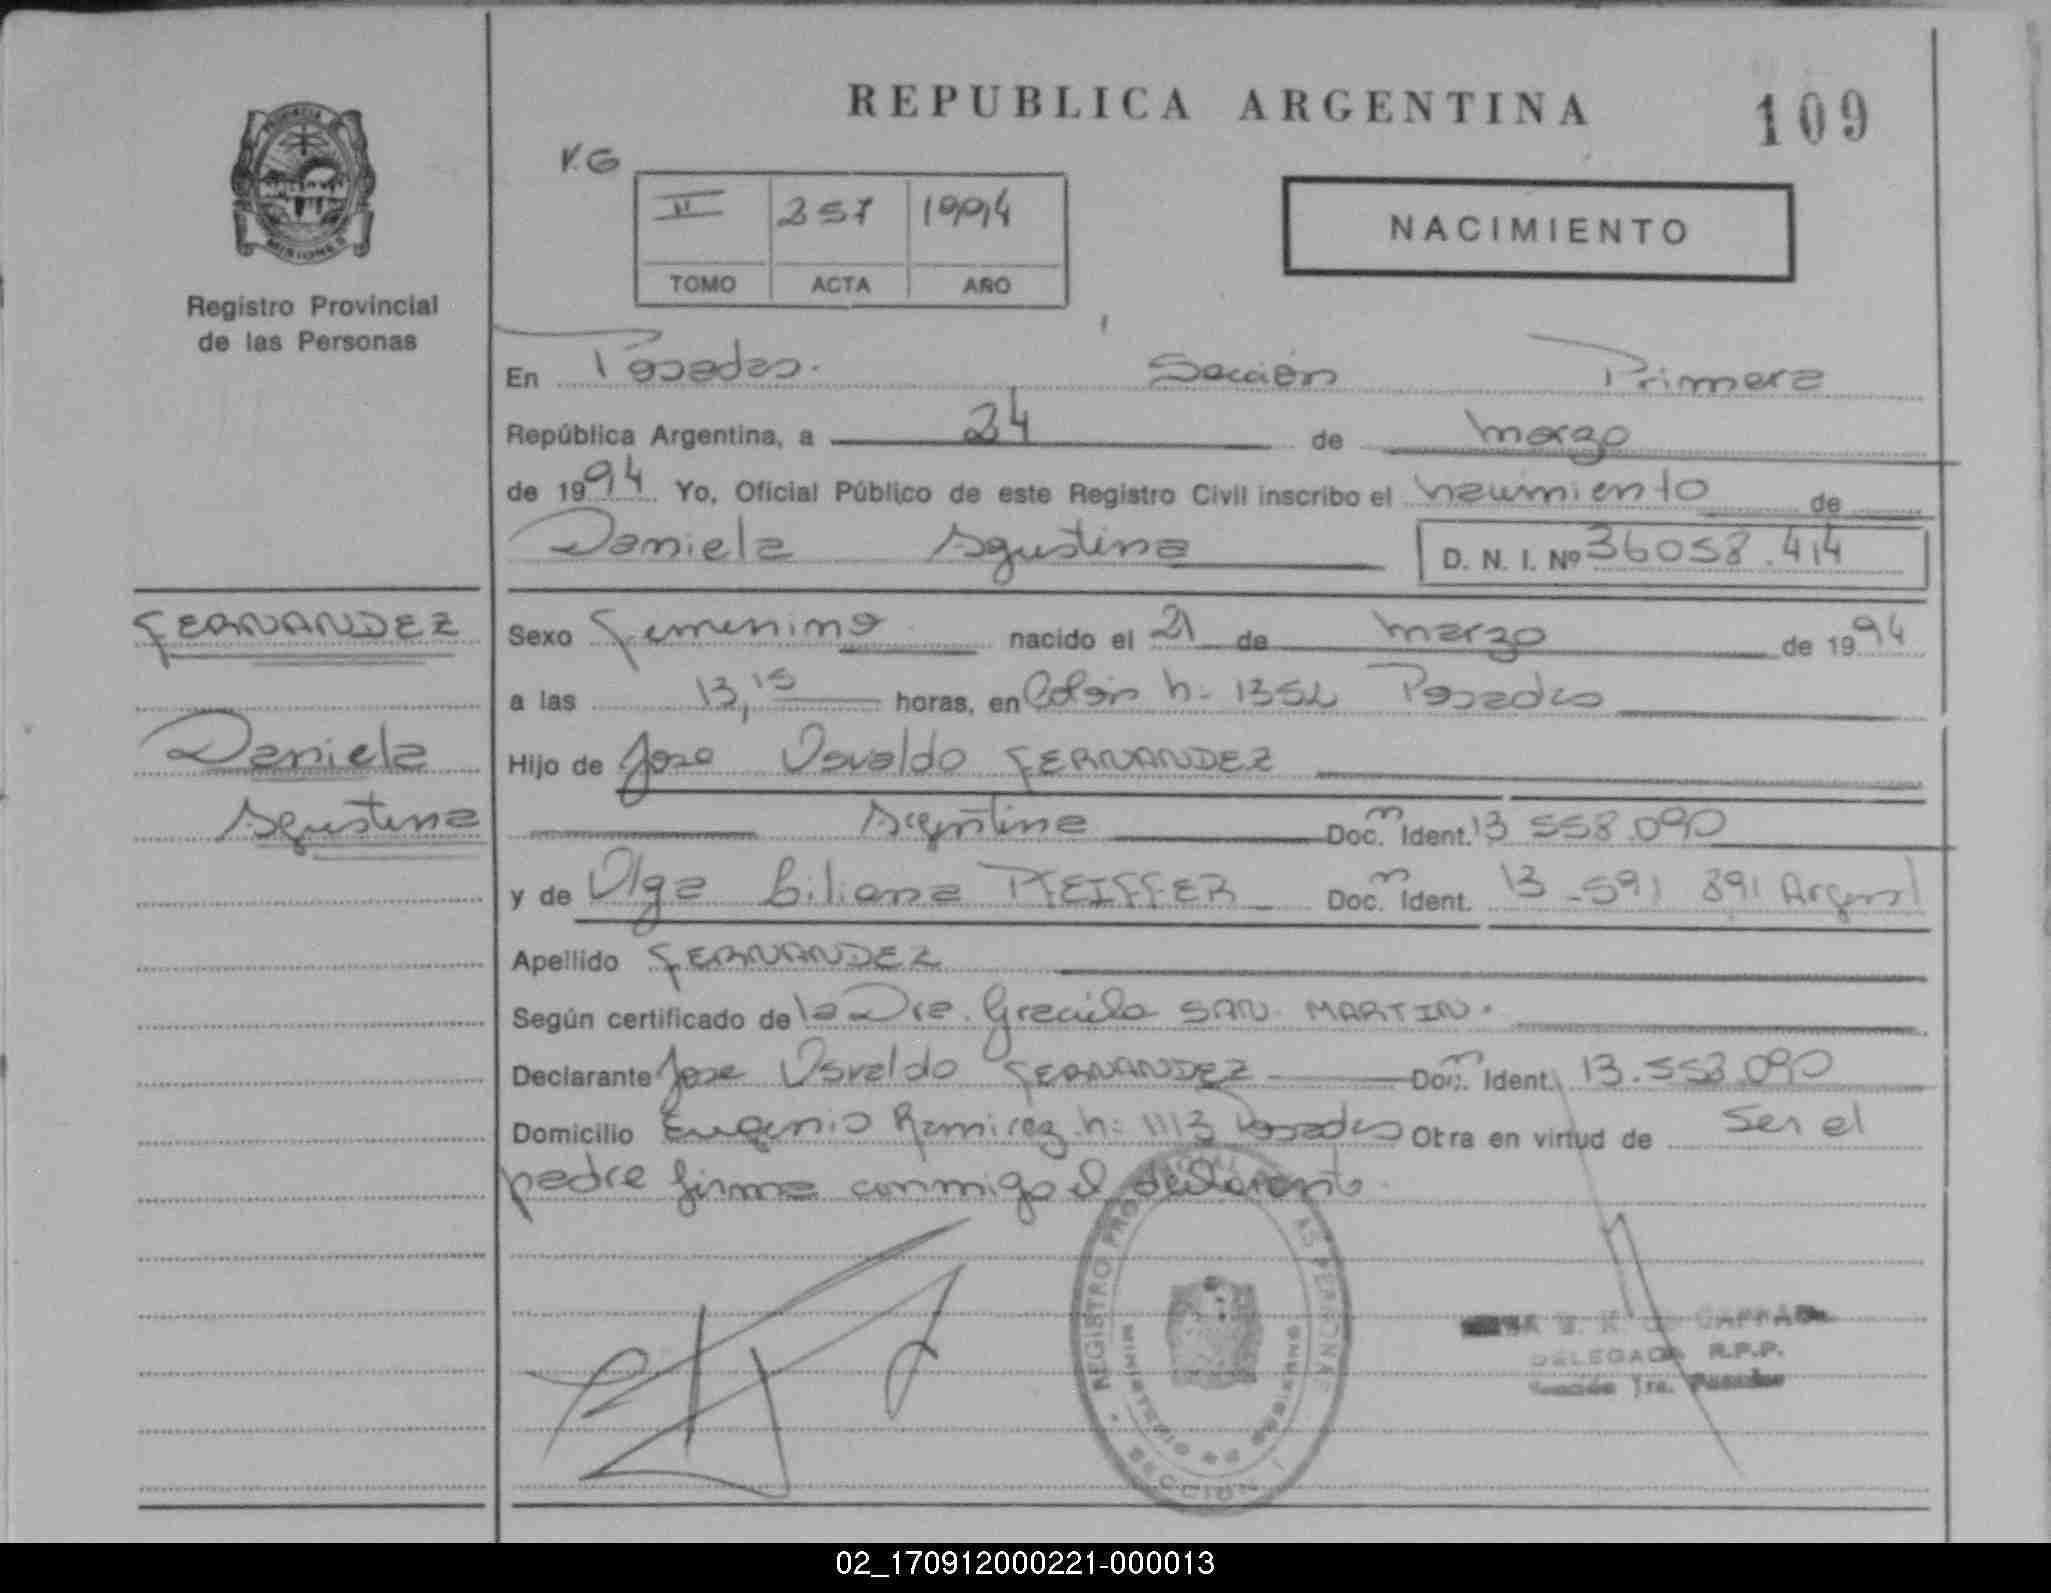 REPUBLICA ARGENTINA
109
MISIONES
Registro Provincial
de las Personas
V.G
II 257 1994
TOMO ACTA AÑO
NACIMIENTO
En Posadas. Sección Primera
República Argentina, a 24 de marzo
de 1994 Yo, Oficial Público de este Registro Civil inscribo el nacimiento de
Daniela Agustina D. N. I. Nº 36058.414
FERNANDEZ
Daniela
Agustina
Sexo femenino nacido el 21 de marzo de 1994
a las 13,15 horas, en Colón n: 1352 Posadas
Hijo de Jose Osvaldo FERNANDEZ
Argentino Doc. Ident. 13 558.090
y de Olga Liliana PFEIFFER Doc. Ident. 13.591 891 Argent
Apellido FERNANDEZ
Según certificado de la Dra. Graciela SAN MARTIN.
Declarante Jose Osvaldo FERNANDEZ Doc. Ident. 13.558.090
Domicilio Eugenio Ramirez n: 1113 Posadas Otra en virtud de ser el
padre firma conmigo el declarante.
REGISTRO PROVINCIAL DE LAS PERSONAS
MINISTERIO DE GOBIERNO
SECCION 1
DELEGADA R.P.P.
Sección 1ra. Posadas
02_170912000221-000013